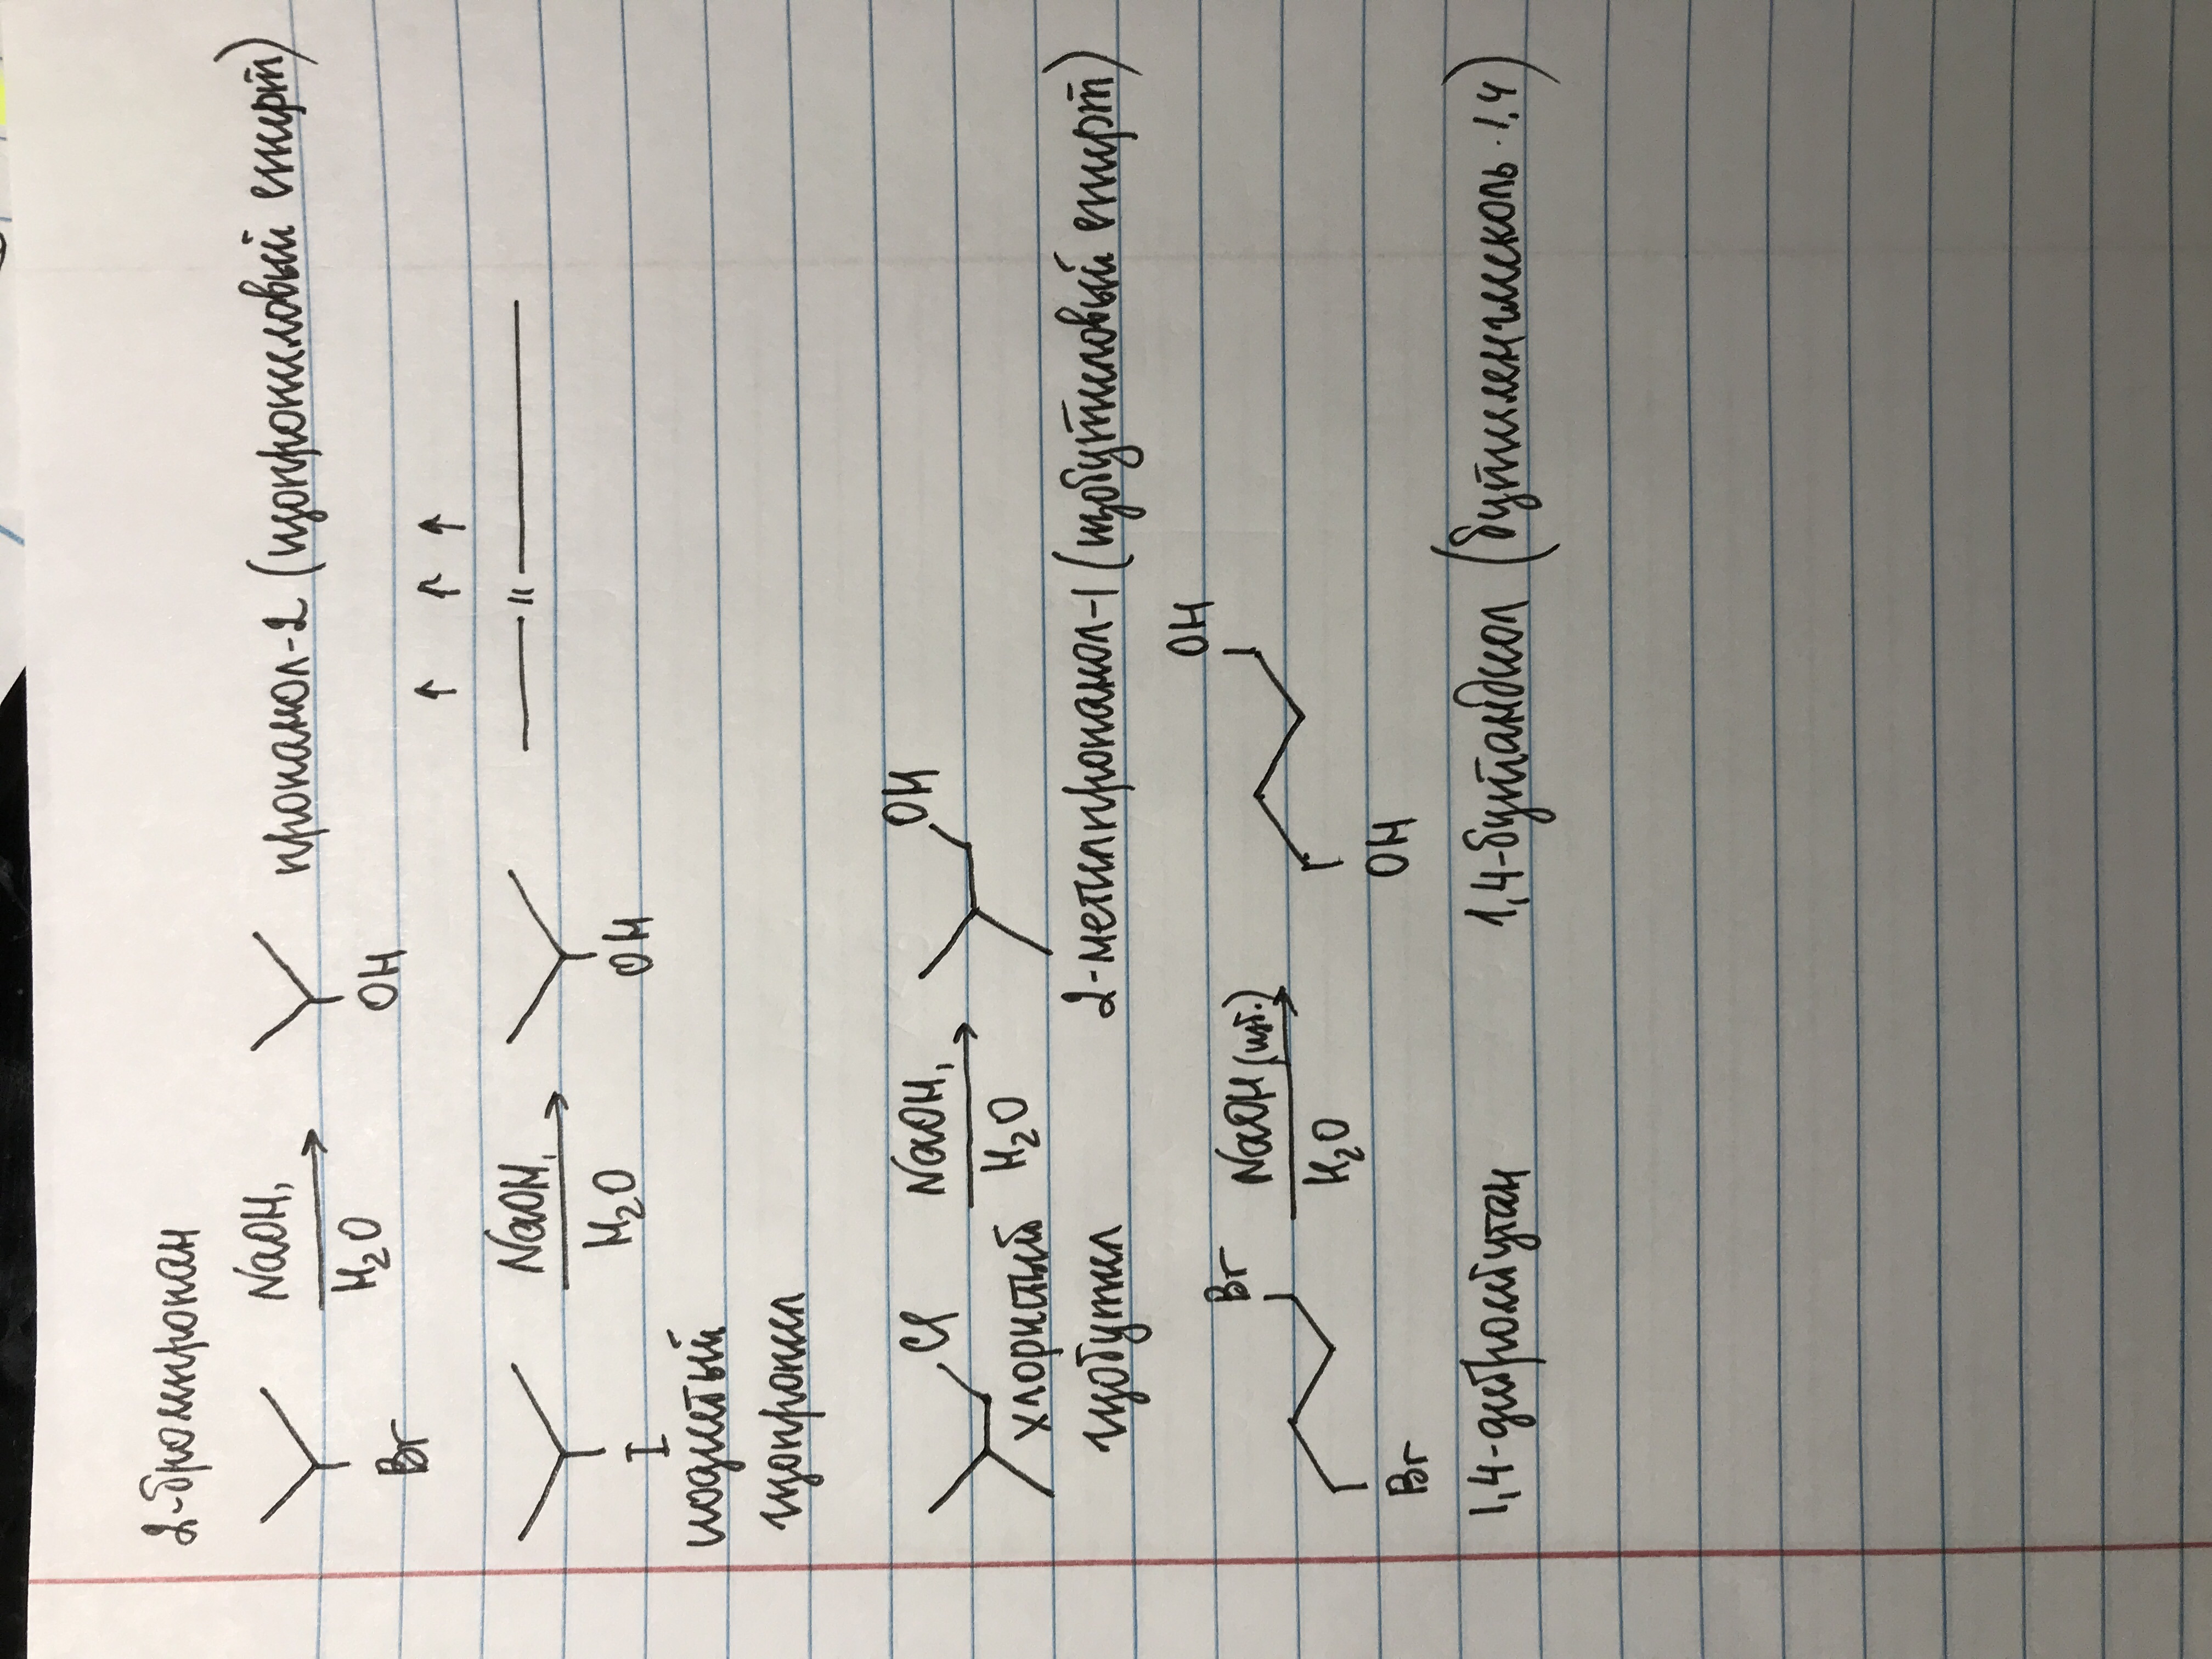 2-бромпропан
Br NaOH, H₂O OH пропанол-2 (изопропиловый спирт)
↑ ↑ ↑
I NaOH, H₂O OH — " —
иодистый
изопропил
Cl NaOH, H₂O OH
хлористый
изобутил 2-метилпропанол-1 (изобутиловый спирт)
Br Br NaOH (изб.) H₂O OH OH
1,4-дибромбутан 1,4-бутандиол (бутиленгликоль-1,4)